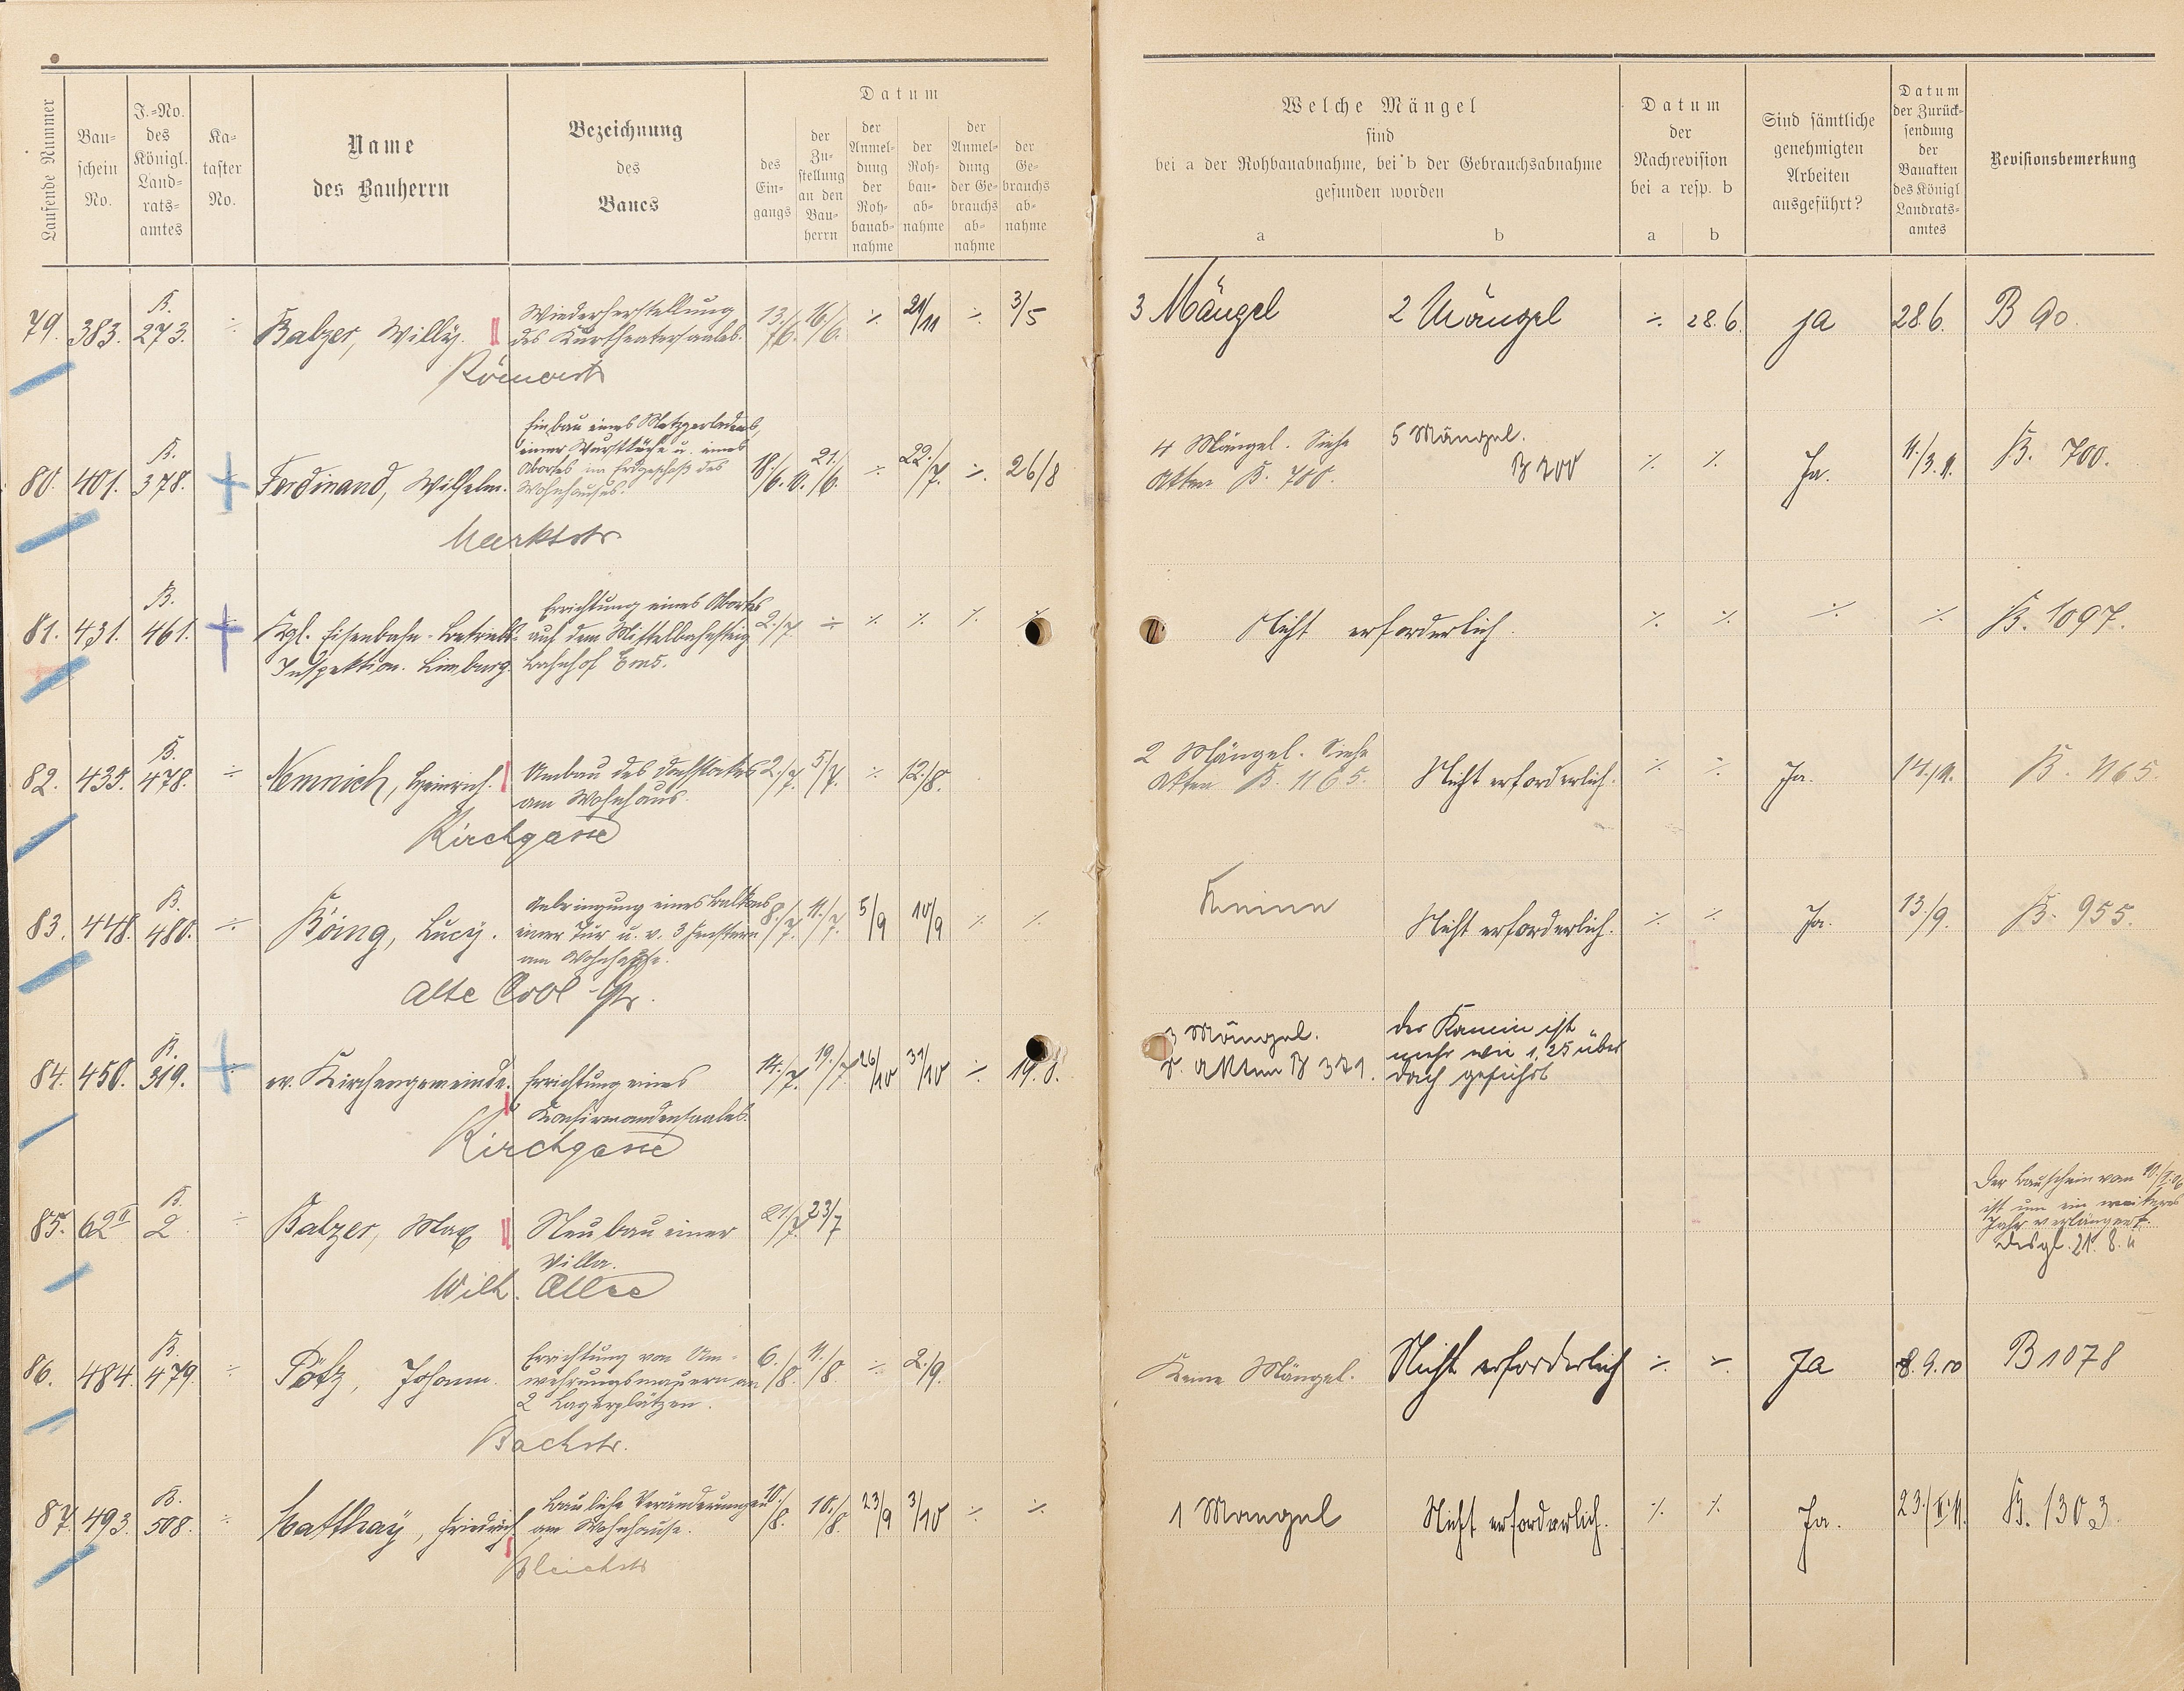 Laufende Nummer
Bau-
schein
No.
J.-No.
des
Königl.
Land-
rats-
amtes
Ka-
taster
No.
Name
des Bauherrn
Bezeichnung
des
Baues
Datum
des
Ein-
gangs
der
Zu-
stellung
an den
Bau-
herrn
der
Anmel-
dung
der
Roh-
bauab-
nahme
der
Roh-
bau-
ab-
nahme
der
Anmel-
dung
der Ge-
brauchs
ab-
nahme
der
Ge-
brauchs
ab-
nahme
Welche Mängel
sind
bei a der Rohbauabnahme, bei b der Gebrauchsabnahme
gefunden worden
a
b
Datum
der
Nachrevision
bei a resp. b
a
b
Sind sämtliche
genehmigten
Arbeiten
ausgeführt?
Datum
der Zurück-
sendung
der
Bauakten
des Königl
Landrats-
amtes
Revisionsbemerkung
79. 383. B. 273. ÷ Balzer, Willy. Wiederherstellung
des Kurtheatersaales. 13./6. 16./6. ÷ 21/11 ÷ 3/5
3 Mängel 2 Mängel ÷ 28.6. ja 28.6. B 90.
80. 401. B. 378. Ferdinand, Wilhelm. Einbau eines Metzgerladens,
einer Wurstküche u. eines
Abortes im Erdgeschoß des
Wohnhauses. 18./6. 21./6. ÷ 22./7. ÷ 26/8
4 Mängel. Siehe
Akten B. 700. 5 Mängel.
B 700 ÷ ÷ Ja. 11/3.11. B. 700.
Marktstr.
81. 431. B. 461. Kgl. Eisenbahn-Betriebs-
Inspektion. Limburg. Errichtung eines Abortes
auf dem Mittelbahnsteig
Bahnhof Ems. 2./7. ÷ ÷ ÷ ÷ ÷
Nicht erforderlich. ÷ ÷ ÷ ÷ B. 1097.
82. 435. B. 478. ÷ Nemnich, Heinrich. Umbau des Dachstockes
am Wohnhaus. 2./7. 5/7. ÷ 12./8.
2 Mängel. Siehe
Akten B. 1165. Nicht erforderlich. ÷ ÷ Ja. B. 1165.
Kirchgasse
83. 448. B. 480. ÷ Böing, Lucy. Anbringung eines Balkons
einer Tür u. v. 3 Fenstern
am Wohnhause. 8./7. 11./7. 5/9 10/9 ÷ ÷
Keine Nicht erforderlich. ÷ ÷ Ja. 13./9. B. 955.
84. 450. B. 319. ev. Kirchengemeinde. Errichtung eines
Konfirmandensaales. 14./7. 19./7 26/10 31/10 ÷ 19.8.
3 Mängel.
s. Akten B 321. der Kamin ist
mehr wie 1,25 über
Dach geführt
Kirchgasse
85. 62 II B. 2 ÷ Balzer, Max Neubau einer
Villa. 21./7. 23/7
Der Bauschein vom
ist um ein weiteres
Jahr verlängert.
desgl. 21. 8. 11
Wilh. Allee
86. 484. B. 479. ÷ Pötz, Johann. Errichtung von Um-
wehrungsmauern an
2 Lagerplätzen. 6./8. 11./8. ÷ 2./9.
Keine Mängel. Nicht erforderlich ÷ ÷ Ja 8.9.10 B 1078
Bachstr.
87. 493. B. 508. ÷ Matthay, Friedrich Bauliche Veränderungen
am Wohnhause. 10./8. 10./8. 23/9 3/10 ÷ ÷
1 Mangel Nicht erforderlich. ÷ ÷ Ja. 23./II.11. B. 1303.
Bleichstr